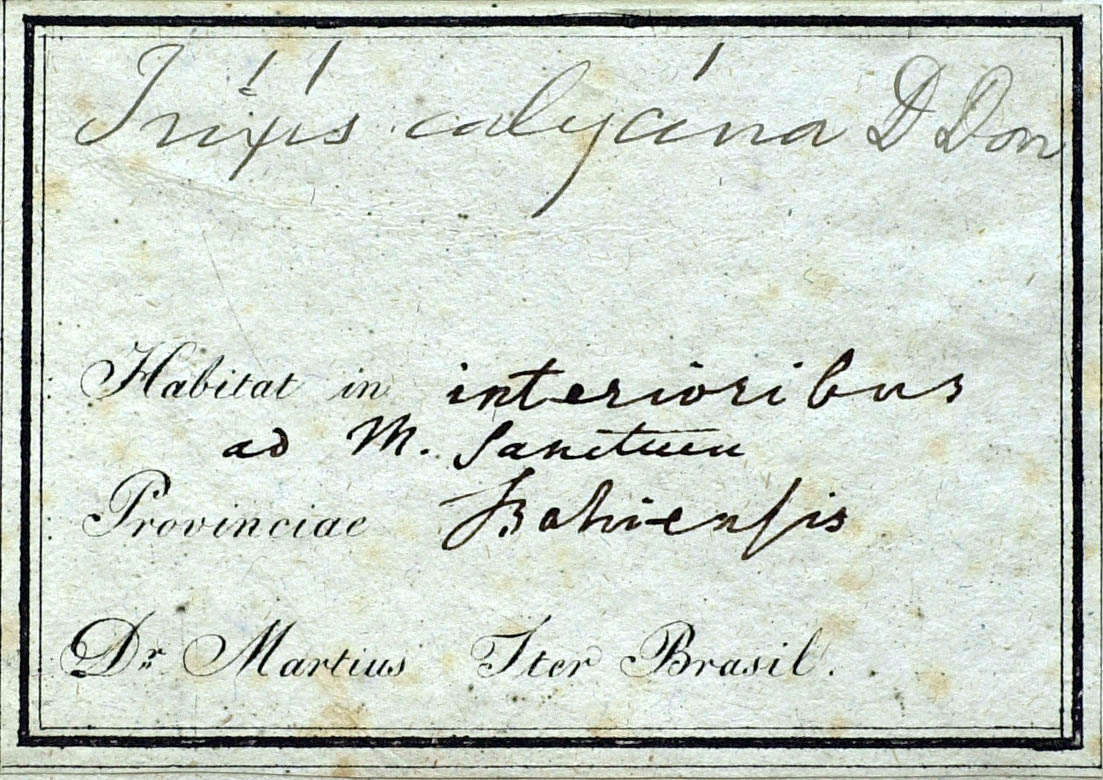 Trixis calycina D Don
Habitat in interioribus
ad M. Sanctum
Provinciae Bahiensis
Dr. Martius Iter Brasil.